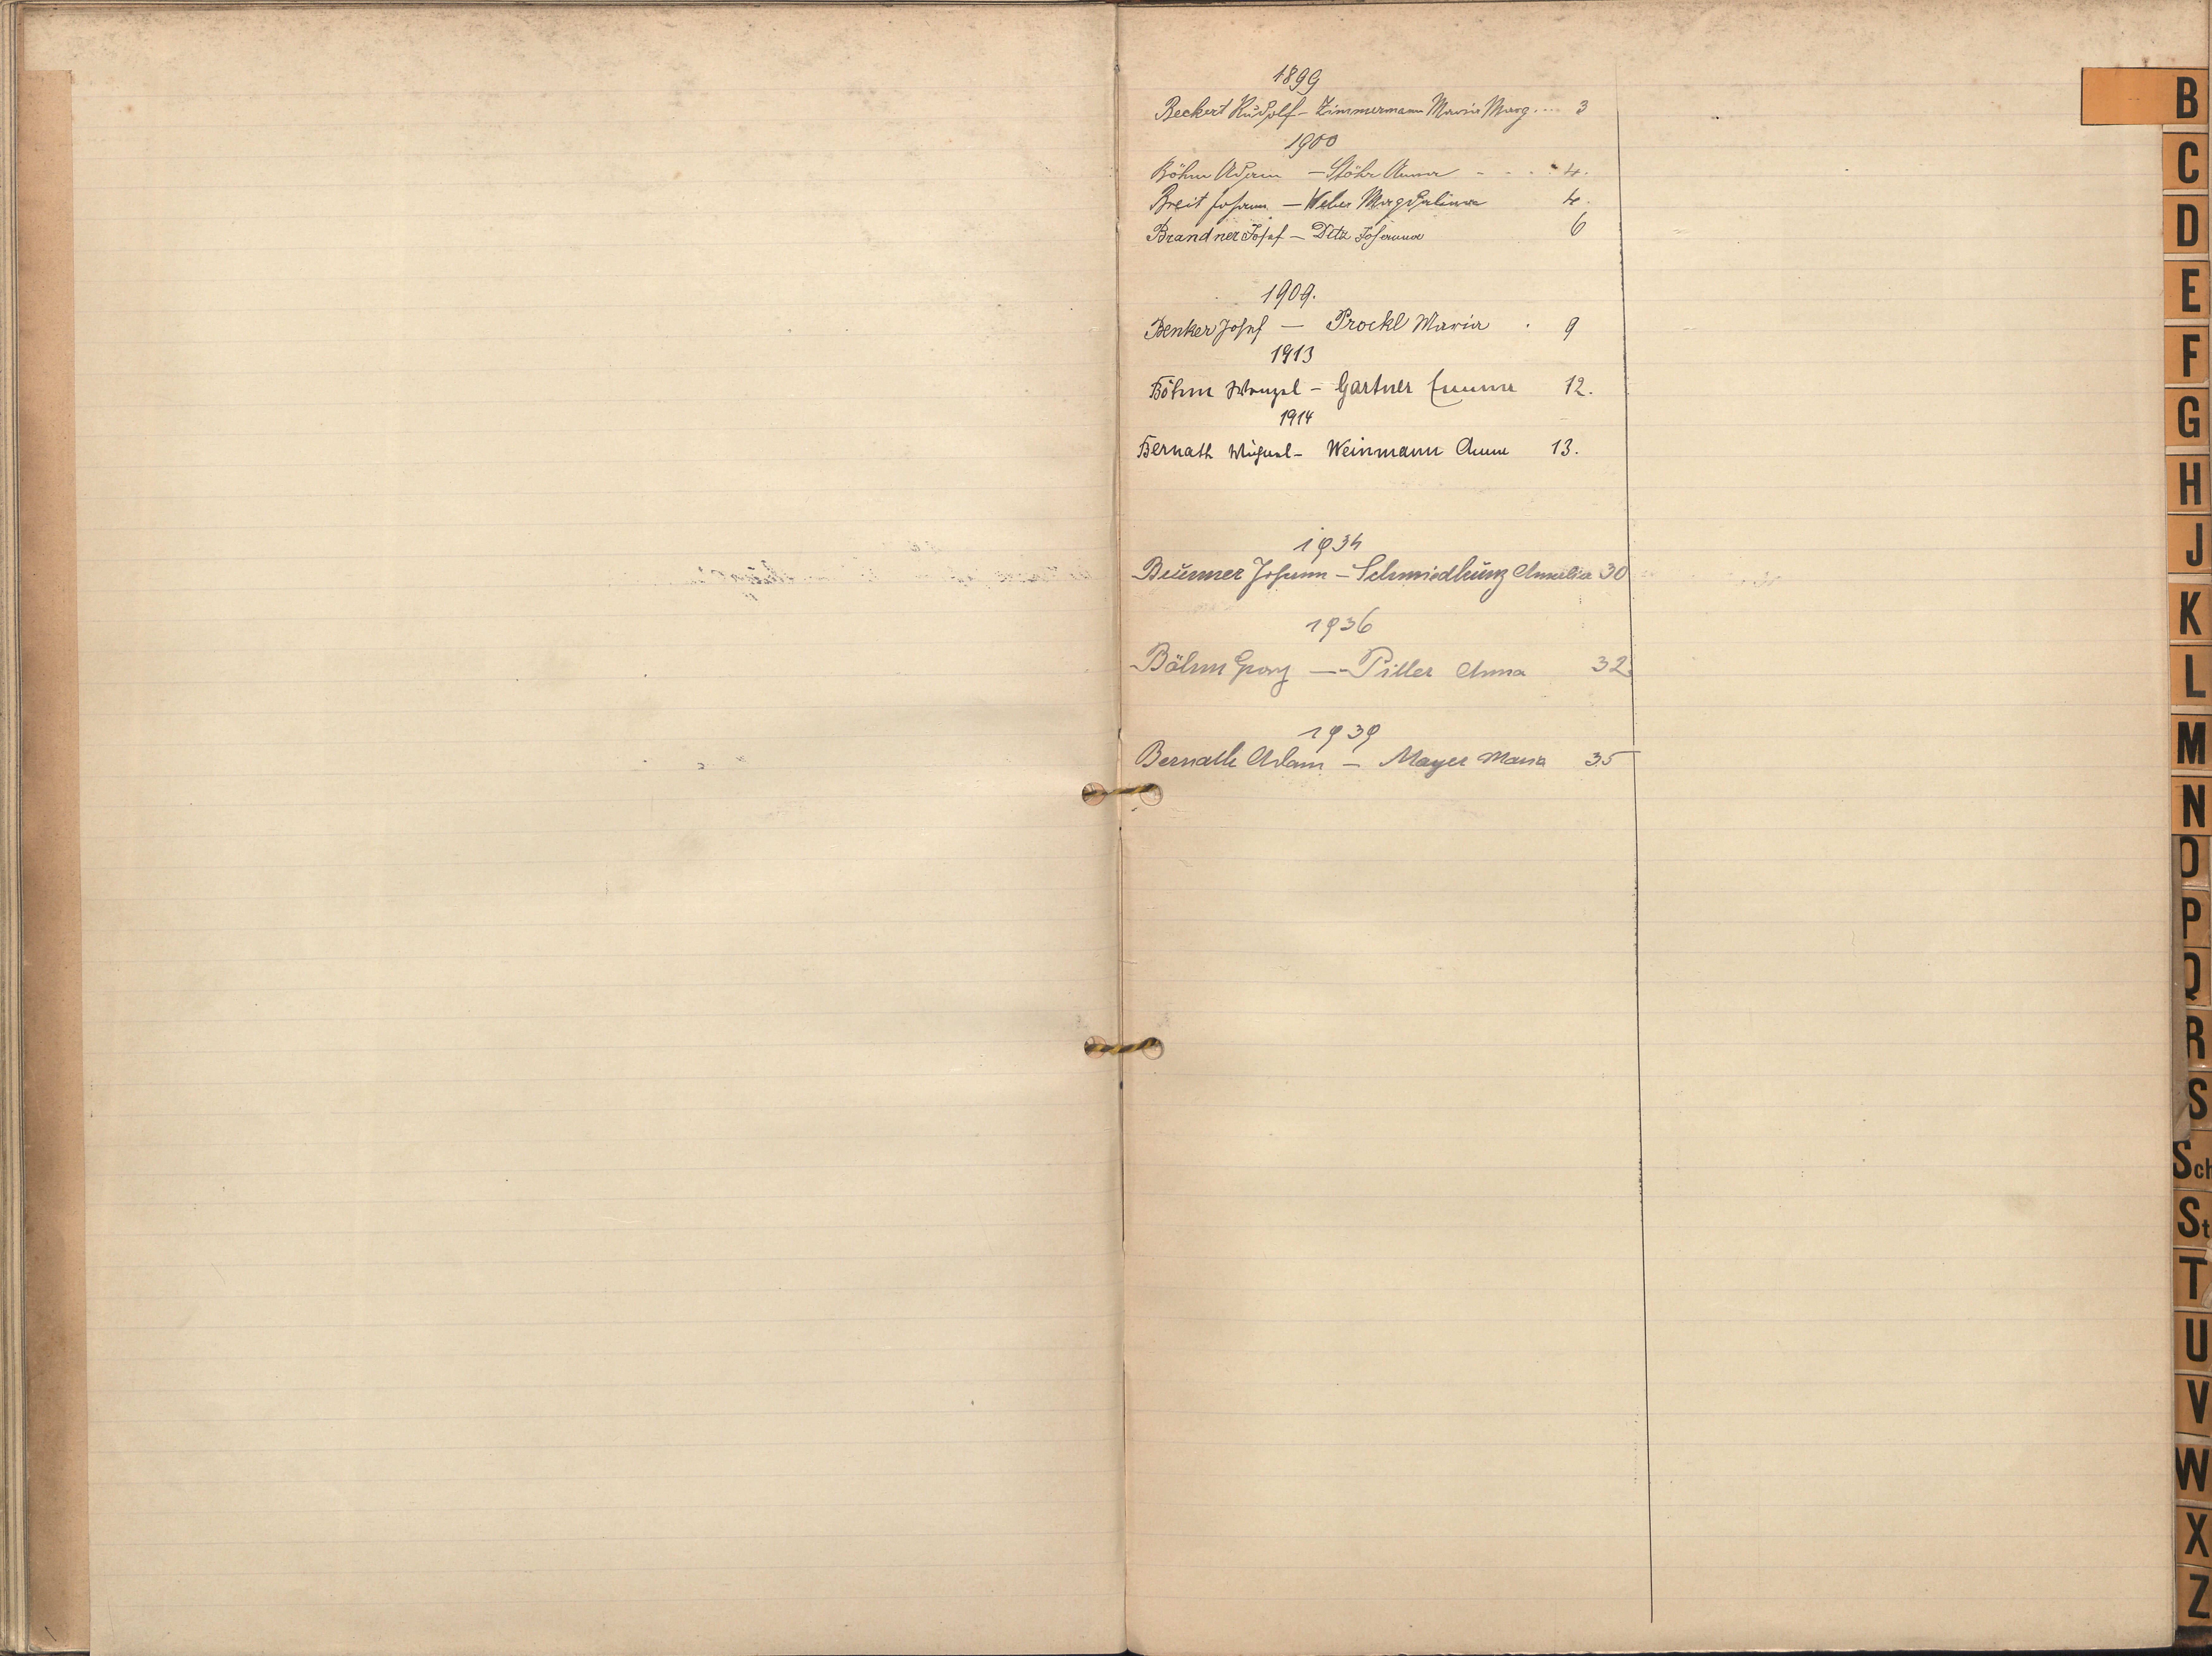 1899
Beckert Rudolf – Zimmermann Maria Marg. ... 3
1900
Böhm Adam – Stöhr Anna - - - - 4.
Breit Johann – Weber Magdalena 4.
Brandner Josef – Johanna 6
1909.
Benker Josef – Prockl Maria . 9
1913
Böhm Wenzel – Gartner Emma 12.
1914
Bernath Michael – Weinmann Anna 13.
1934
Johann – Amalia 30
1936
Böhm Georg – Piller Anna 32.
1939
Bernath Adam – Mayer Maria 35
B
C
D
E
F
G
H
J
K
L
M
N
O
P
Q
R
S
Sch
St
T
U
V
W
X
Z